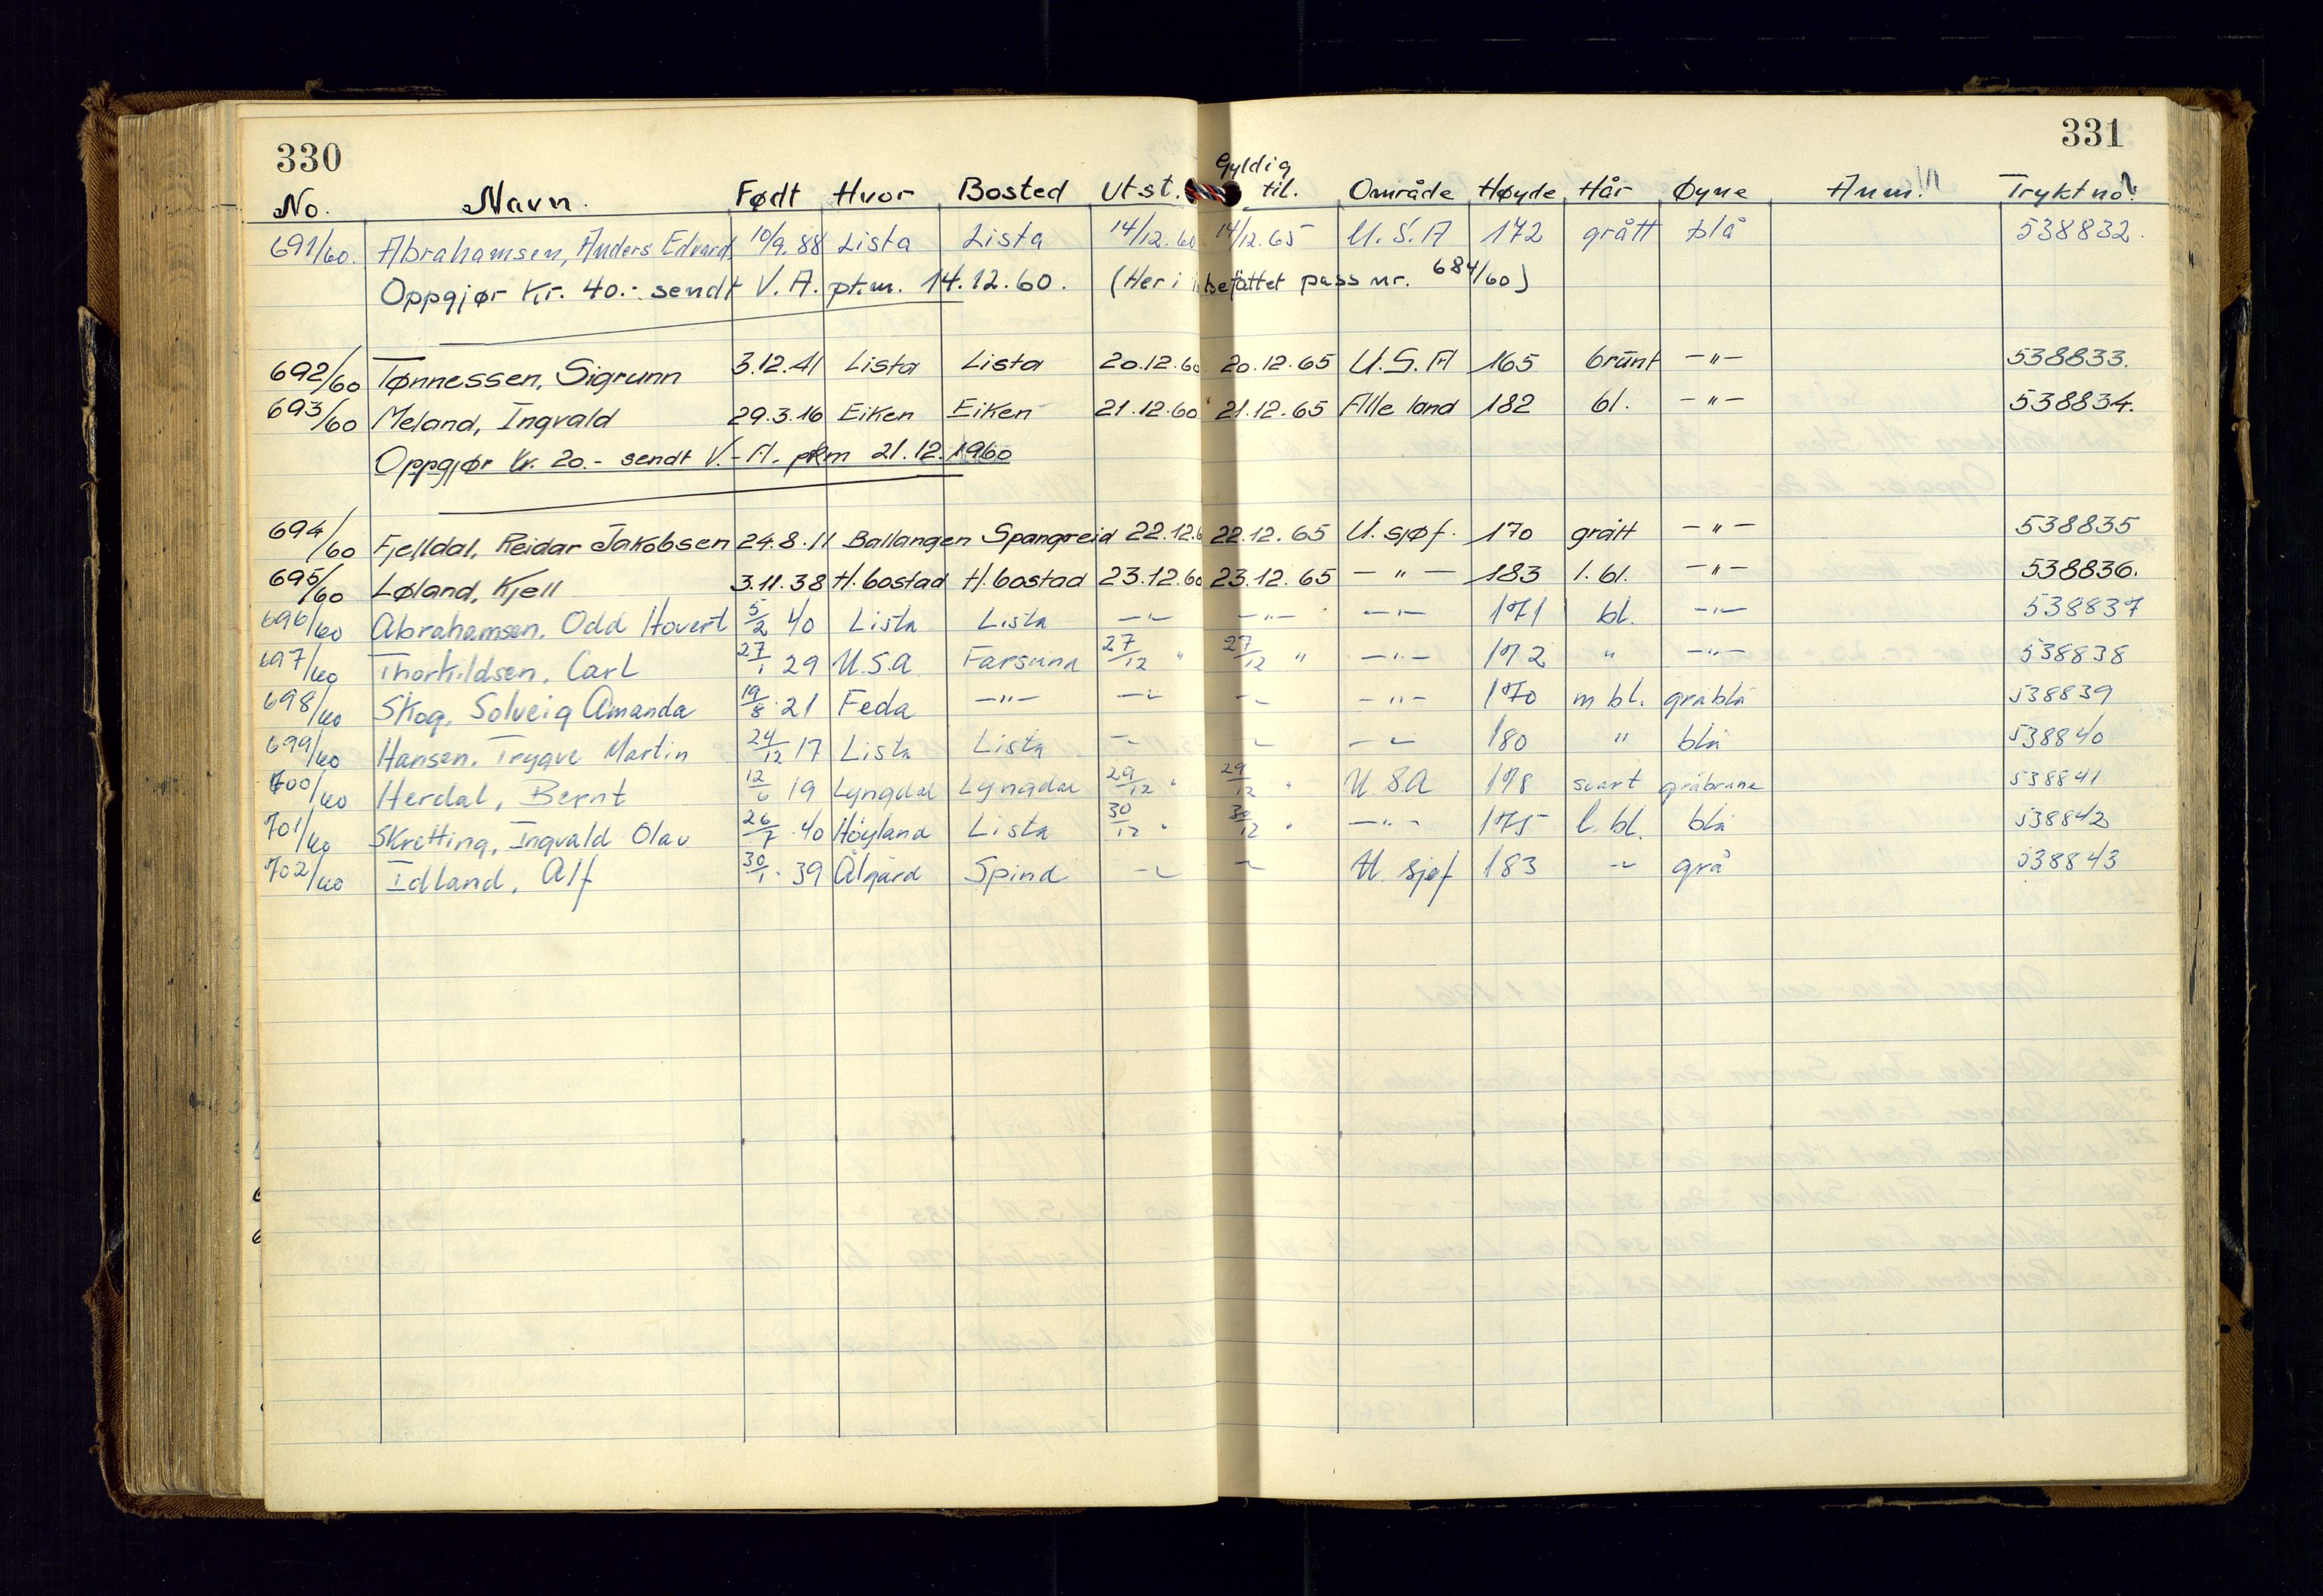 330
331
No. Navn. Født Hvor Bosted Utst. Gyldig til. Område Høyde Hår Øyne Anm. Trykt no.
691/60. Abrahamsen, Anders Edvard 10/9.88 Lista Lista 14/12.60 14/12.65 U.S.A 172 grått blå 538832.
Oppgjør Kr. 40.- sendt V.A. ptm. 14.12.60. (Her i befattet pass nr. 684/60)
692/60 Tønnessen, Sigrunn 3.12.41 Lista Lista 20.12.60 20.12.65 U.S.A 165 brunt -"- 538833.
693/60 Meland, Ingvald 29.3.16 Eiken Eiken 21.12.60 21.12.65 Alle land 182 bl. -"- 538834.
Oppgjør kr. 20.- sendt V.-A. pkm 21.12.1960
694/60 Fjelldal, Reidar Jakobsen 24.8.11 Ballangen Spangreid 22.12.6 22.12.65 U. sjøf. 170 grått -"- 538835
695/60 Løland, Kjell 3.11.38 H.bostad H.bostad 23.12.60 23.12.65 -"- 183 l. bl. -"- 538836.
696/60 Abrahamsen, Odd Hovert 5/2 40 Lista Lista -"- -"- -"- 171 bl. -"- 538837
697/60 Thorkildsen, Carl 27/1 29 U.S.A. Farsund 27/12 " 27/12 " -"- 172 " -"- 538838
698/60 Skog, Solveig Amanda 19/8.21 Feda -"- -"- -"- -"- 170 m bl. gråblå 538839
699/60 Hansen, Trygve Martin 24/12 17 Lista Lista -"- -"- -"- 180 " blå 538840
700/60 Herdal, Bernt 12/6 19 Lyngdal Lyngdal 29/12 " 29/12 " U.S.A 178 svart gråbrune 538841
701/60 Skretting, Ingvald Olav 26/7.40 Höyland Lista 30/12 " 30/12 " -"- 175 l. bl. blå 538842
702/60 Idland, Alf 30/1.39 Ålgård Spind -"- -"- U. sjøf 183 -"- grå 538843